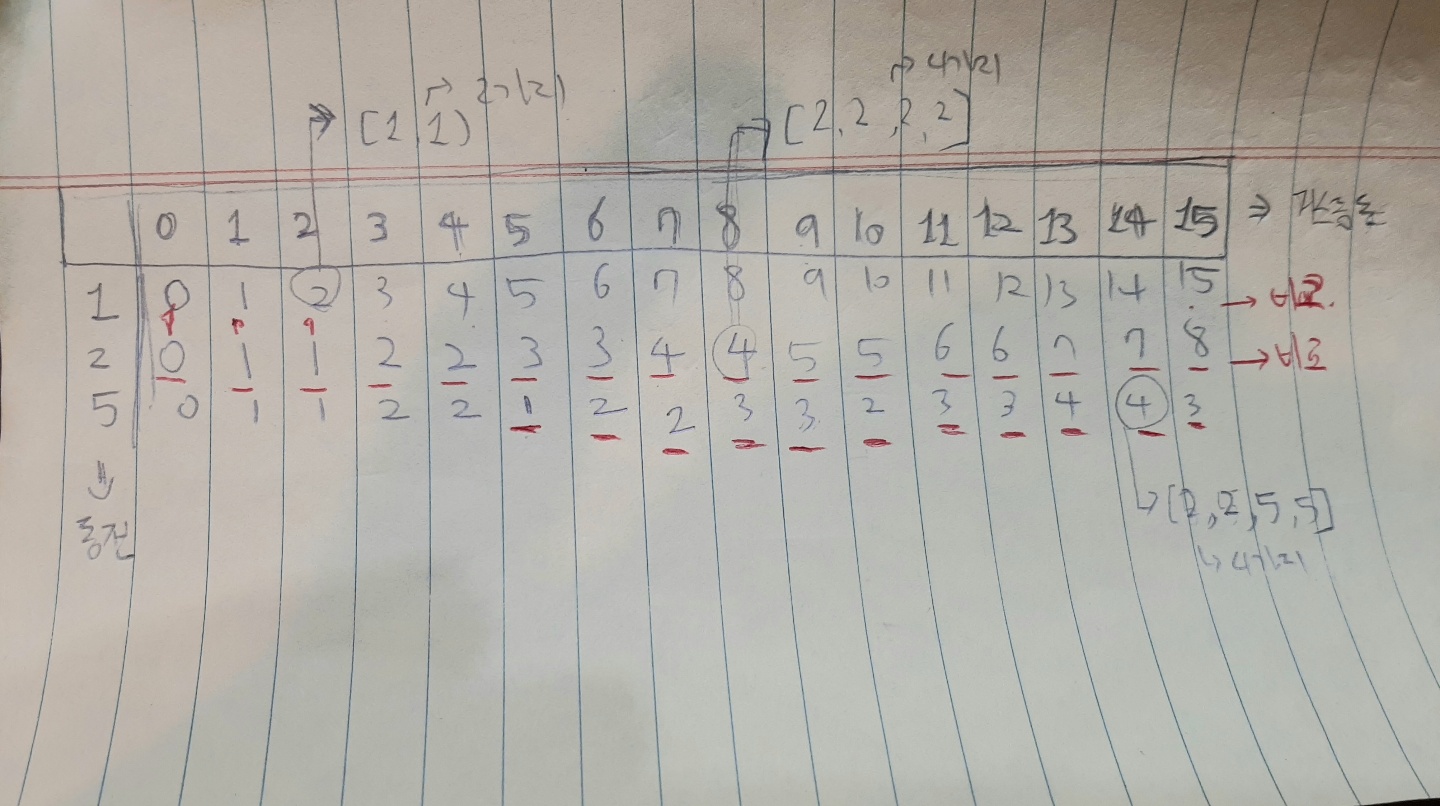 → 4가지
→ 2가지
→ [1, 1)
→ [2, 2, 2, 2]
0 1 2 3 4 5 6 7 8 9 10 11 12 13 14 15 ⇒
1 0 1 2 3 4 5 6 7 8 9 10 11 12 13 14 15 → 비교.
2 0 1 1 2 2 3 3 4 4 5 5 6 6 7 7 8 → 비교
5 0 1 1 2 2 1 2 2 3 3 2 3 3 4 4 3
⇓
동전
↳ [2, 2, 5, 5]
↳ 4가지